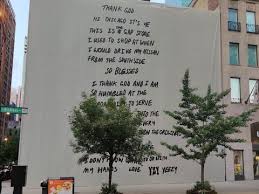 THANK GOD
HI CHICAGO IT'S YE
THIS IS A GAP STORE
I USED TO SHOP AT WHEN
I WOULD DRIVE MY NISSAN
FROM THE SOUTHSIDE
SO BLESSED
I THANK GOD AND I AM
SO HUMBLED AT THE
TO SERVE
INTO THE
EVERY
I DON'T KNOW
MY HANDS LOVE YZY YEEZY